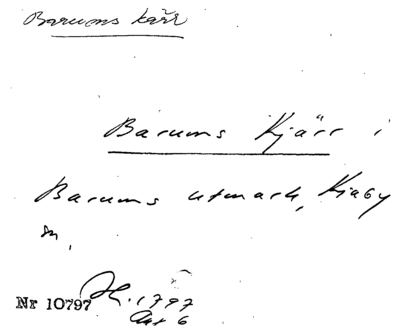 Barums kärr
Barums Kjärr i
Barums utmark, Kiaby
sn,
Nr 10797
1797
Akt 6